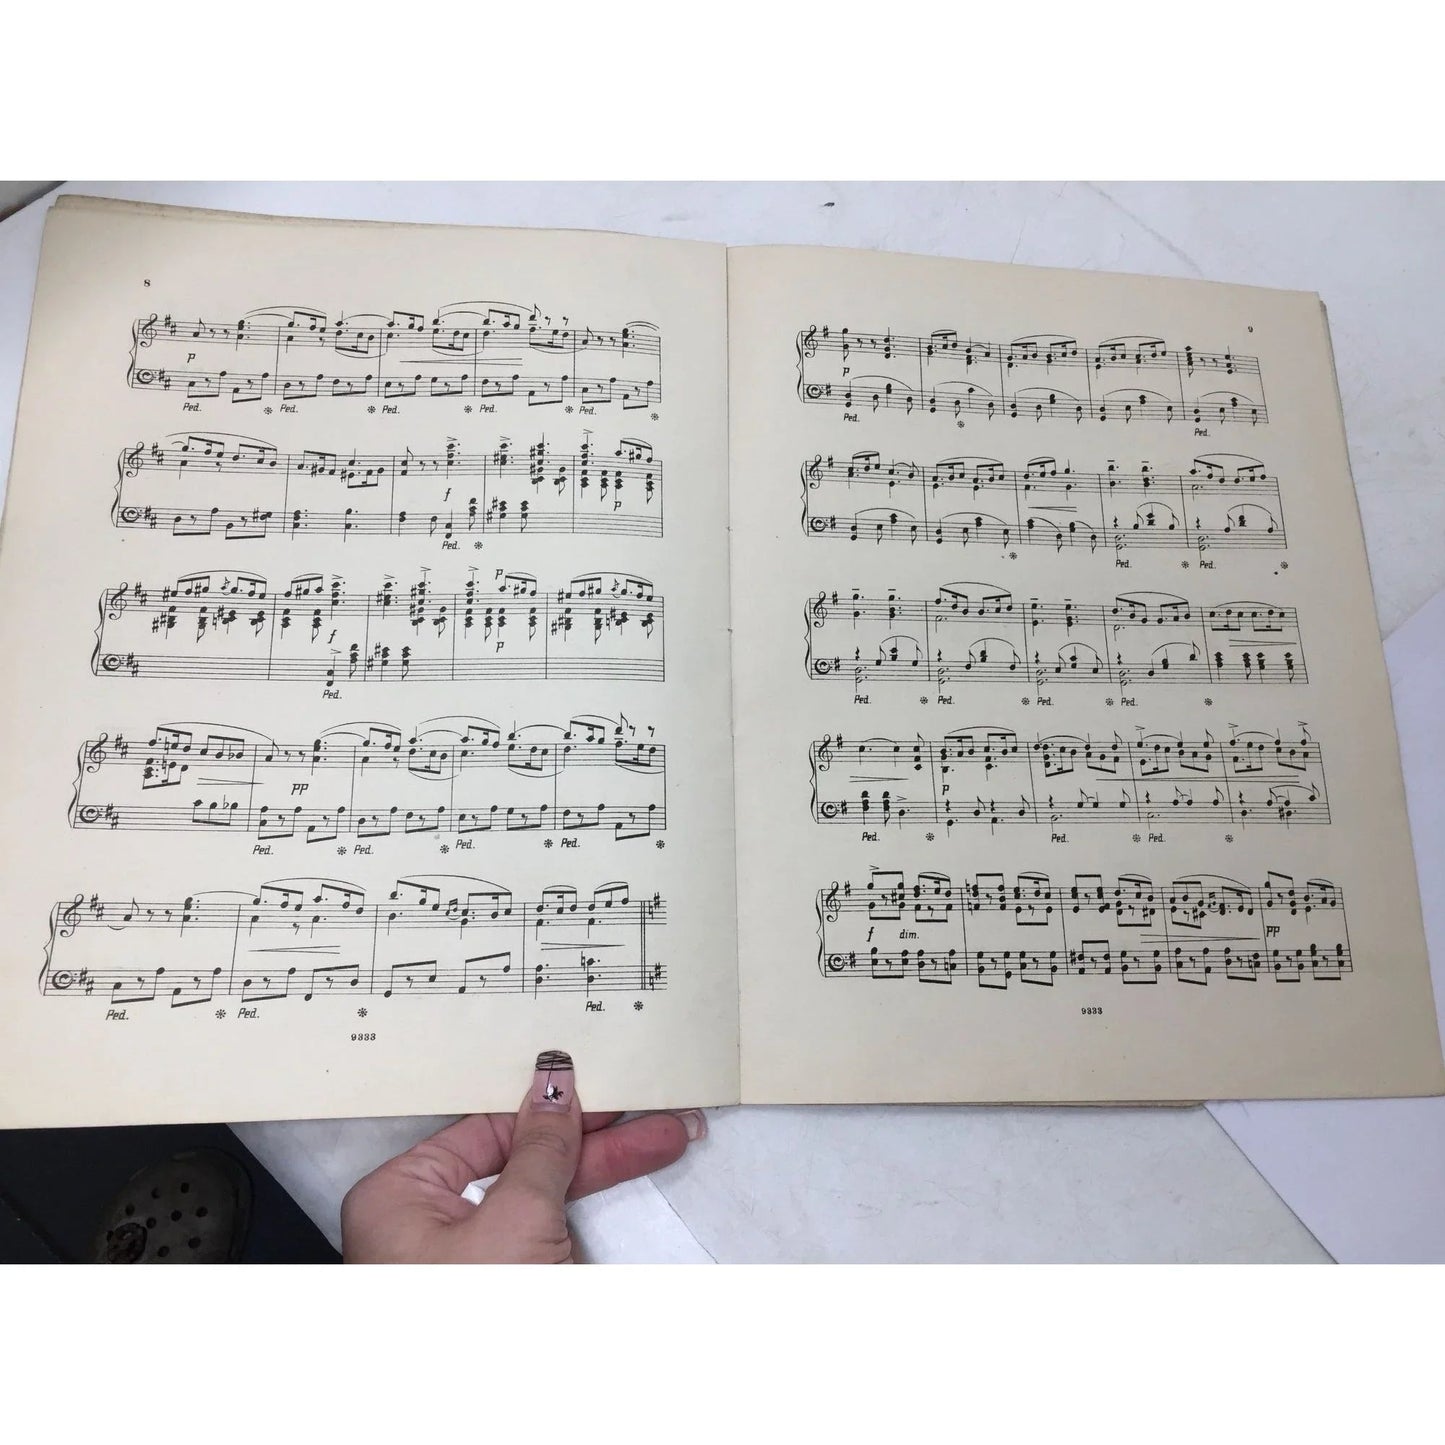 8
p
Ped. Ped. Ped. Ped. Ped.
f p
Ped.
p
f p
Ped.
pp
Ped. Ped. Ped. Ped.
Ped. Ped. Ped.
9333
9
p
Ped. Ped.
Ped. Ped.
Ped. Ped. Ped. Ped.
p
Ped. Ped. Ped.
f dim. pp
9333